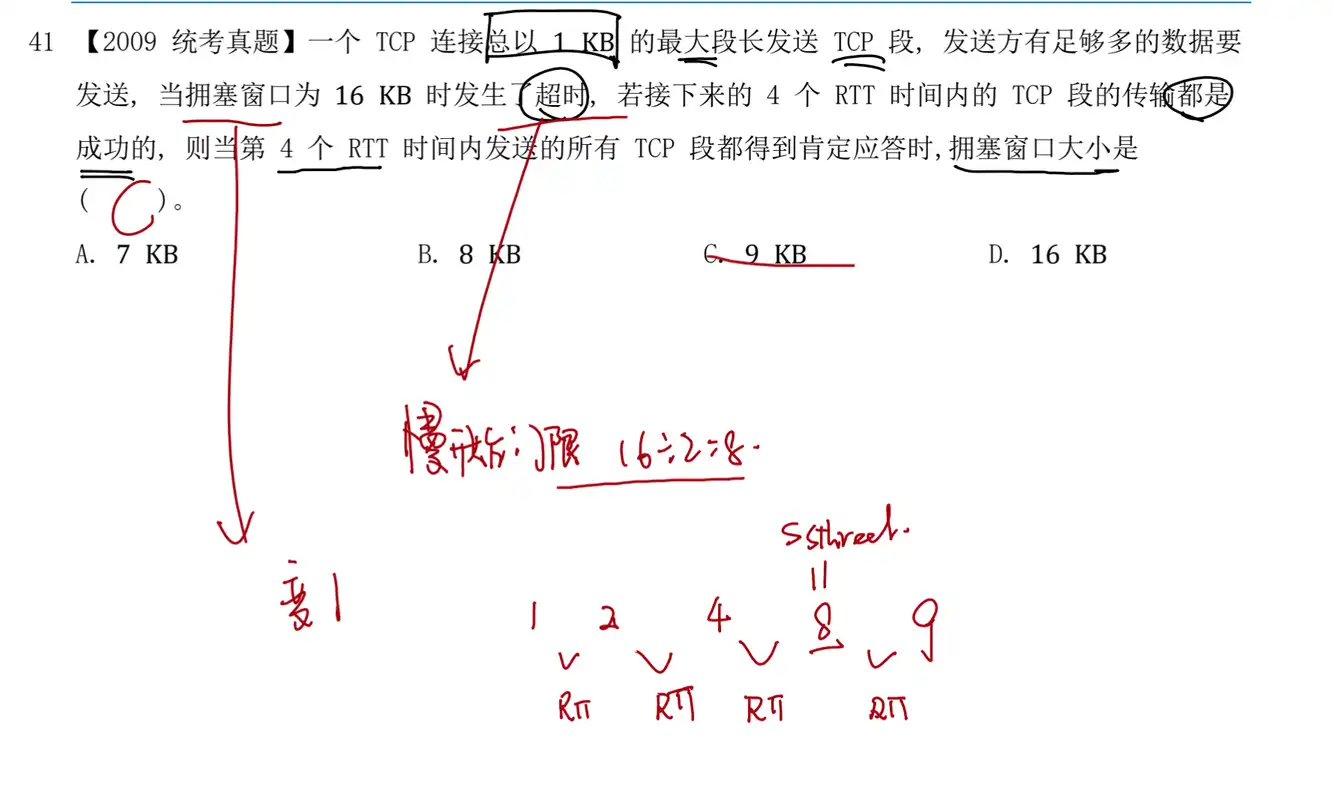 41 【2009 统考真题】一个 TCP 连接总以 1 KB 的最大段长发送 TCP 段, 发送方有足够多的数据要
发送, 当拥塞窗口为 16 KB 时发生了超时, 若接下来的 4 个 RTT 时间内的 TCP 段的传输都是
成功的, 则当第 4 个 RTT 时间内发送的所有 TCP 段都得到肯定应答时,拥塞窗口大小是
( C )。
A. 7 KB B. 8 KB C. 9 KB D. 16 KB
慢开始门限 16÷2=8.
变1
1 2 4 8 9
RTT RTT RTT RTT